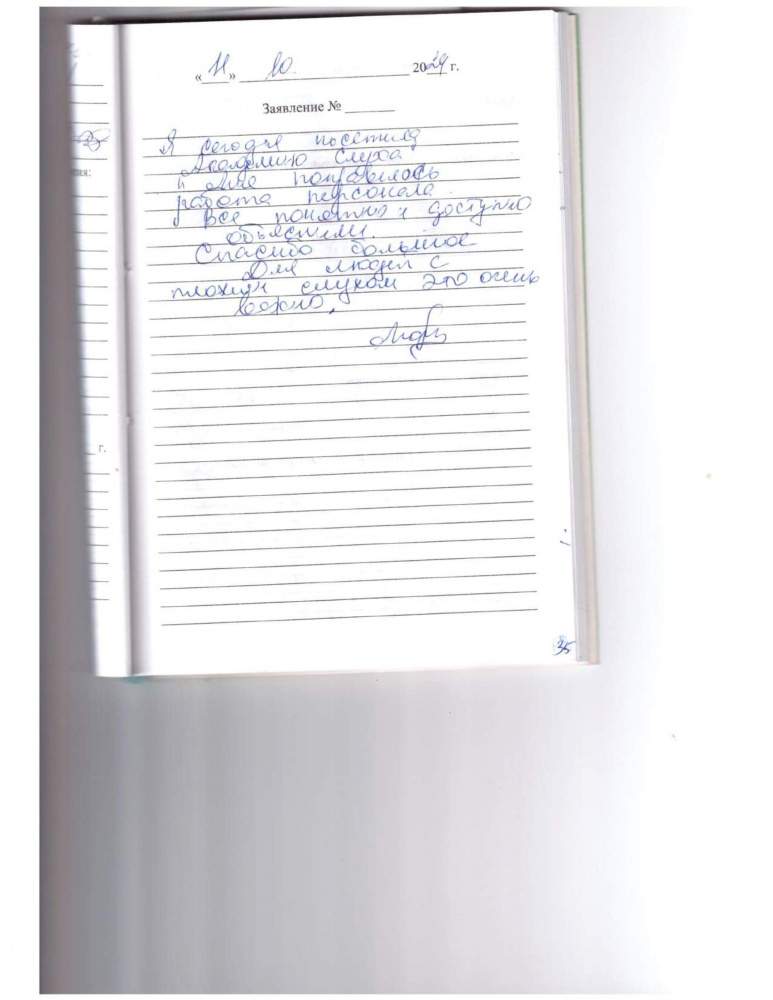 «11» 10. 2024 г.
Заявление №
Я сегодня посетила
Академию Слуха
и мне понравилось
работа персонала.
Все понятно и доступно
объяснили.
Спасибо большое
Для людей с
плохим слухом это очень
важно.
г.
35